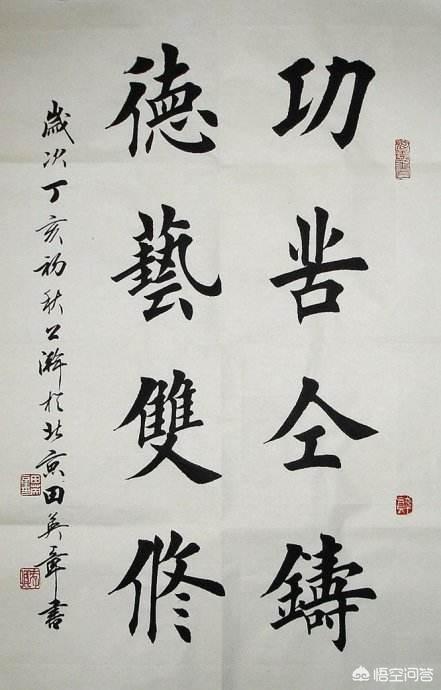 功苦仝鑄
德藝雙修
歲次丁亥初秋澣於北京田英章書
悟空问答